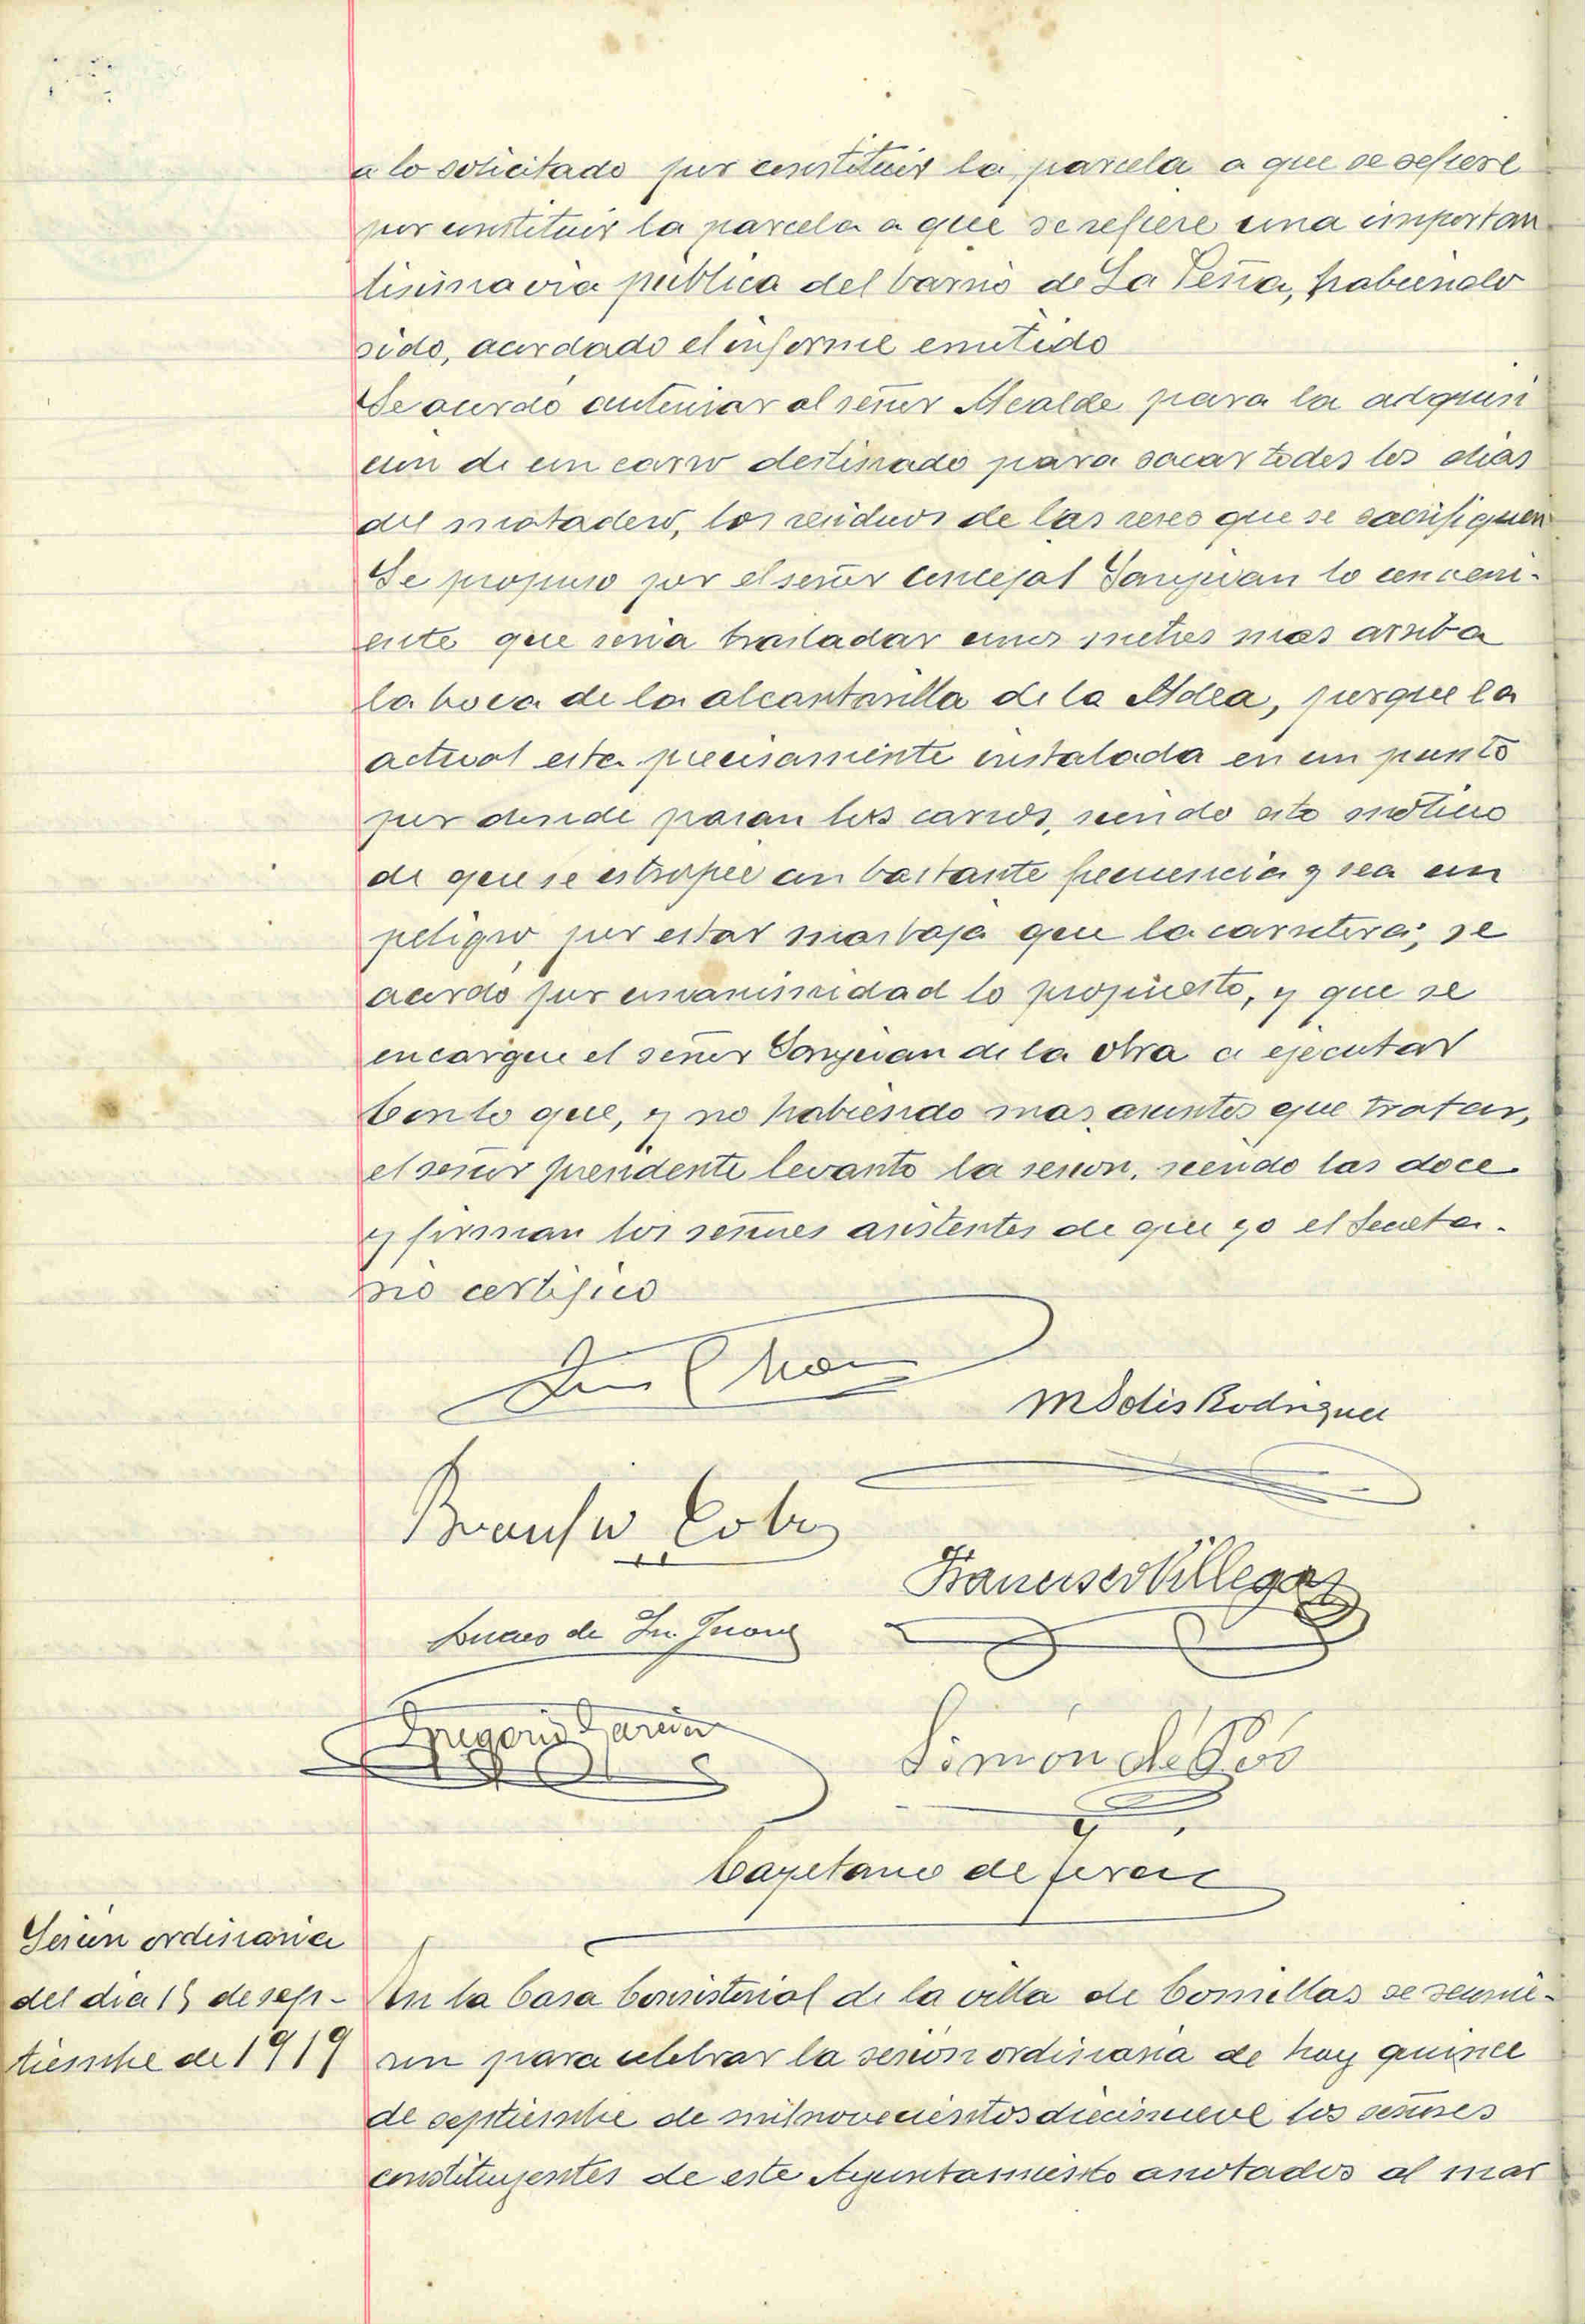 a lo solicitado por constituir la parcela a que se refiere
por constituir la parcela a que se refiere una importan
tisima via publica del barrio de La Peña, habiendo
sido, acordado el informe emitido
Se acordó autorizar al señor Alcalde para la adquisi
cion de un carro destinado para sacar todos los dias
del matadero, los residuos de las reses que se sacrifiquen
Se propuso por el señor Concejal Sanjuan lo conveni-
ente que seria trasladar unos metros mas arriba
la boca de la alcantarilla de la Aldea, porque la
actual esta precisamente instalada en un punto
por donde pasan los carros, siendo esto motivo
de que se estropee con bastante frecuencia y sea un
peligro por estar mas baja que la carretera; se
acordó por unanimidad lo propuesto, y que se
encargue el señor Sanjuan de la obra a ejecutar
Con lo que, y no habiendo mas asuntos que tratar,
el señor presidente levanto la sesion, siendo las doce
y firman los señores asistentes de que yo el Secreta-
rio certifico
M Solis Rodriguez
Cobo
Francisco Villegas
de Sn. Juan
Gregorio Garcia
Simón de Pós
Cayetano de
Sesion ordinaria
del dia 15 de sep-
tiembre de 1919
En la Casa Consistorial de la villa de Comillas se reunie-
ron para celebrar la sesión ordinaria de hoy quince
de septiembre de mil novecientos diecinueve los señores
constituyentes de este Ayuntamiento anotados al mar